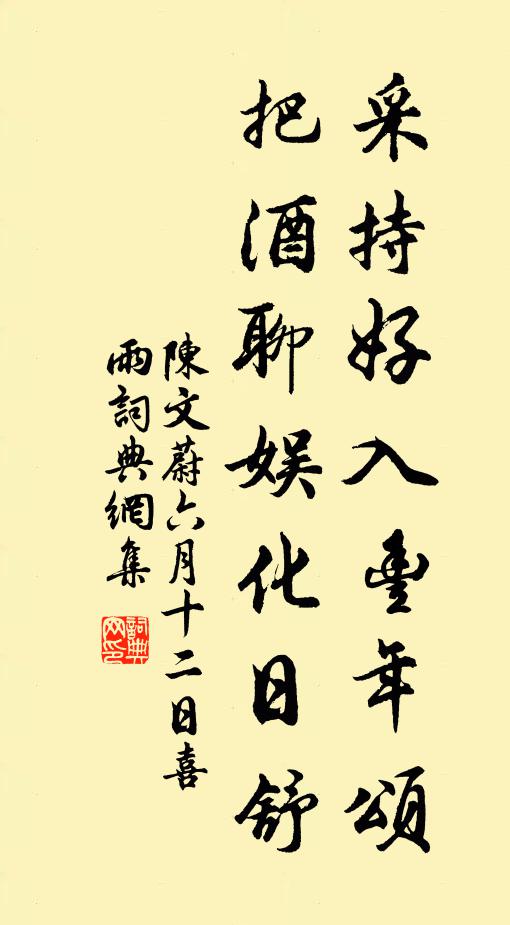 采持好入豐年頌
把酒聊娛化日舒
陳文蔚六月十二日喜
雨詞典網集
詞典
网印